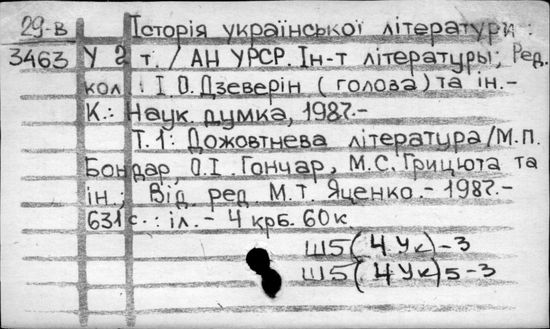 29-В Історія української літератури :
3463 У 2 т. / АН УРСР. Ін-т літературы; Ред.
кол.: І.О.Дзеверін (голова) та ін.-
К.: Наук. думка, 1987.-
Т.1: Дожовтнева література/М.П.
Бондар, О.І. Гончар, М.С.Грицюта та
ін.; Від. ред. М.Т. Яценко.- 1987.-
631 с.: іл.- 4 крб. 60к
Ш5(4Ук)-3
Ш5(4Ук)5-3